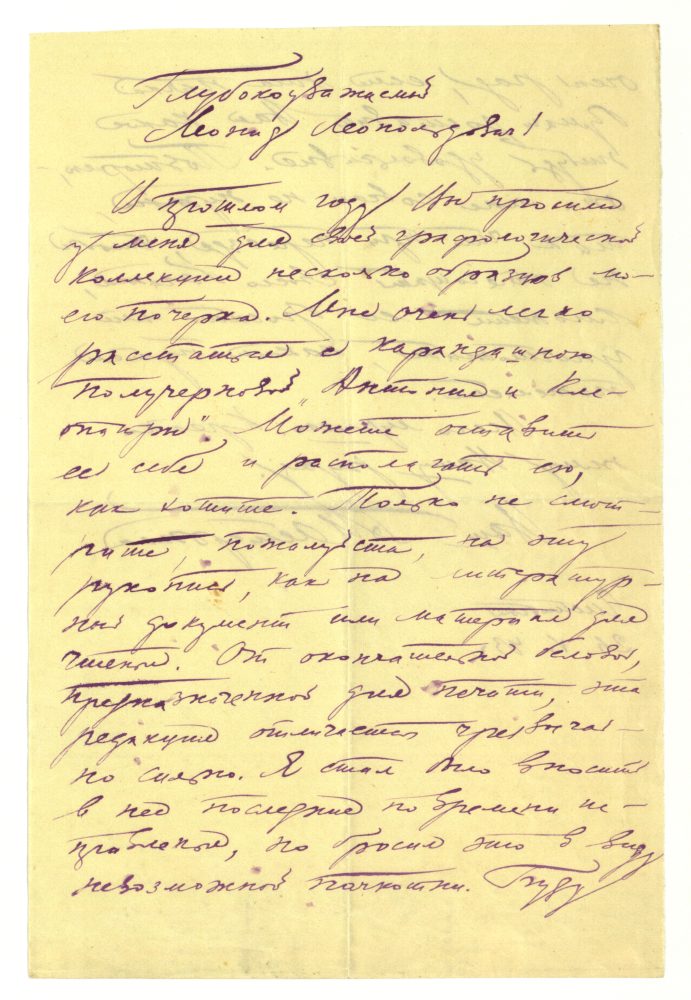 Глубокоуважаемый
Леонид Леопольдович!
В прошлом году Вы просили
у меня для своей графологической
коллекции несколько образцов мо-
его почерка. Мне очень легко
расстаться с карандашною
получерновой „Антония и Кле-
опатры“. Можете оставить
ее себе и располагать ею,
как хотите. Только не смот-
рите, пожалуйста, на эту
рукопись, как на литератур-
ный документ или материал для
чтенья. От окончательной беловой,
предназначенной для печати, эта
редакция отличается чрезвычай-
но сильно. Я стал было вносить
в нее последние по времени ис-
правленья, но бросил это в виду
невозможной пачкотни. Буду